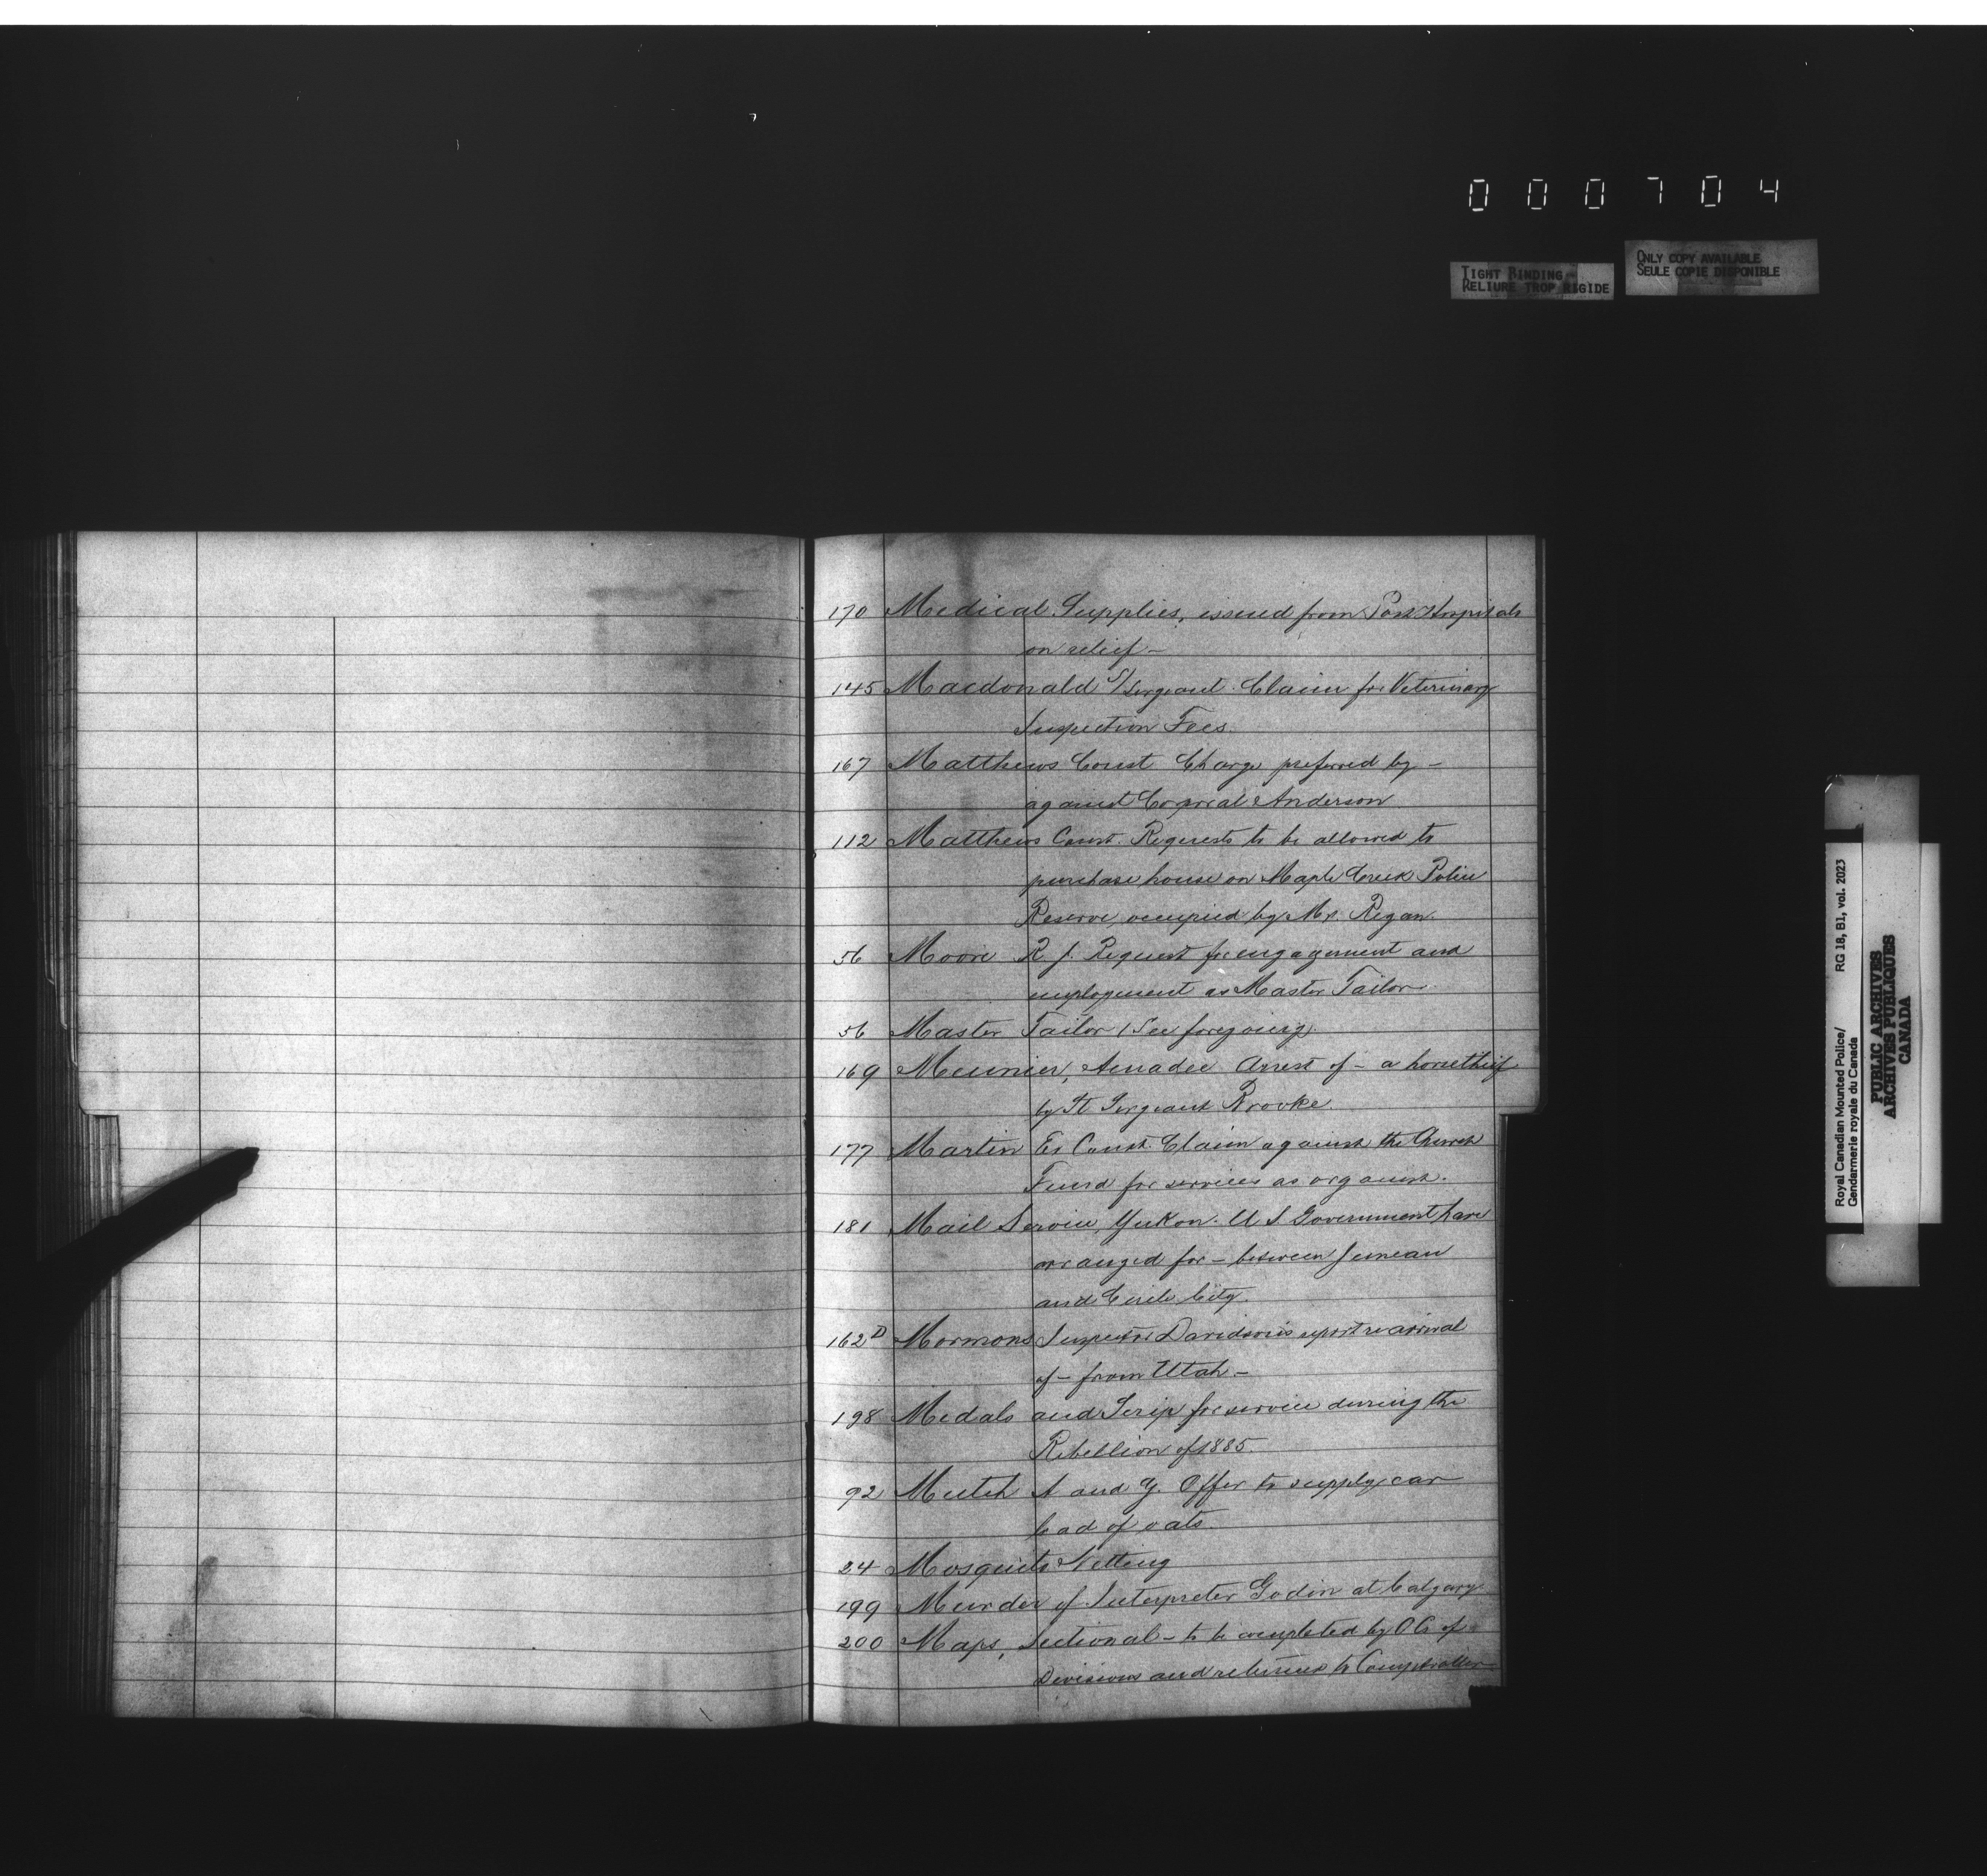 000704
TIGHT BINDING
RELIURE TROP RIGIDE
ONLY COPY AVAILABLE
SEULE COPIE DISPONIBLE
170 Medical Supplies, issued from Post Hospitals
on relief –
145 Macdonald S/Sergeant. Claim for Veterinary
Inspection Fees.
167 Matthews Const Charge preferred by –
against Corporal Anderson
112 Matthews Const. Requests to be allowed to
purchase house on Maple Creek Police
Reserve, occupied by Mr. Regan.
56 Moore R. J. Request for engagement and
employment as Master Tailor
56 Master Tailor (See foregoing)
169 Meunier, Amadee Arrest of – a horsethief
by St Sergeant Brooke.
177 Martin Ex Const. Claim against the Church
Fund for services as organist.
181 Mail Service, Yukon. U S Government have
arranged for – between Juneau
and Circle City.
162D Mormons Inspector Davidson's report re arrival
of – from Utah –
198 Medals and Scrip for service during the
Rebellion of 1885.
92 Mutch A and Y. Offer to supply car
load of oats.
24 Mosquito Netting
199 Murder of Interpreter Godin at Calgary
200 Maps, Sectional – to be completed by OC of
Divisions and returned to Comptroller
Royal Canadian Mounted Police/
Gendarmerie royale du Canada
RG 18, B1, vol. 2023
PUBLIC ARCHIVES
ARCHIVES PUBLIQUES
CANADA